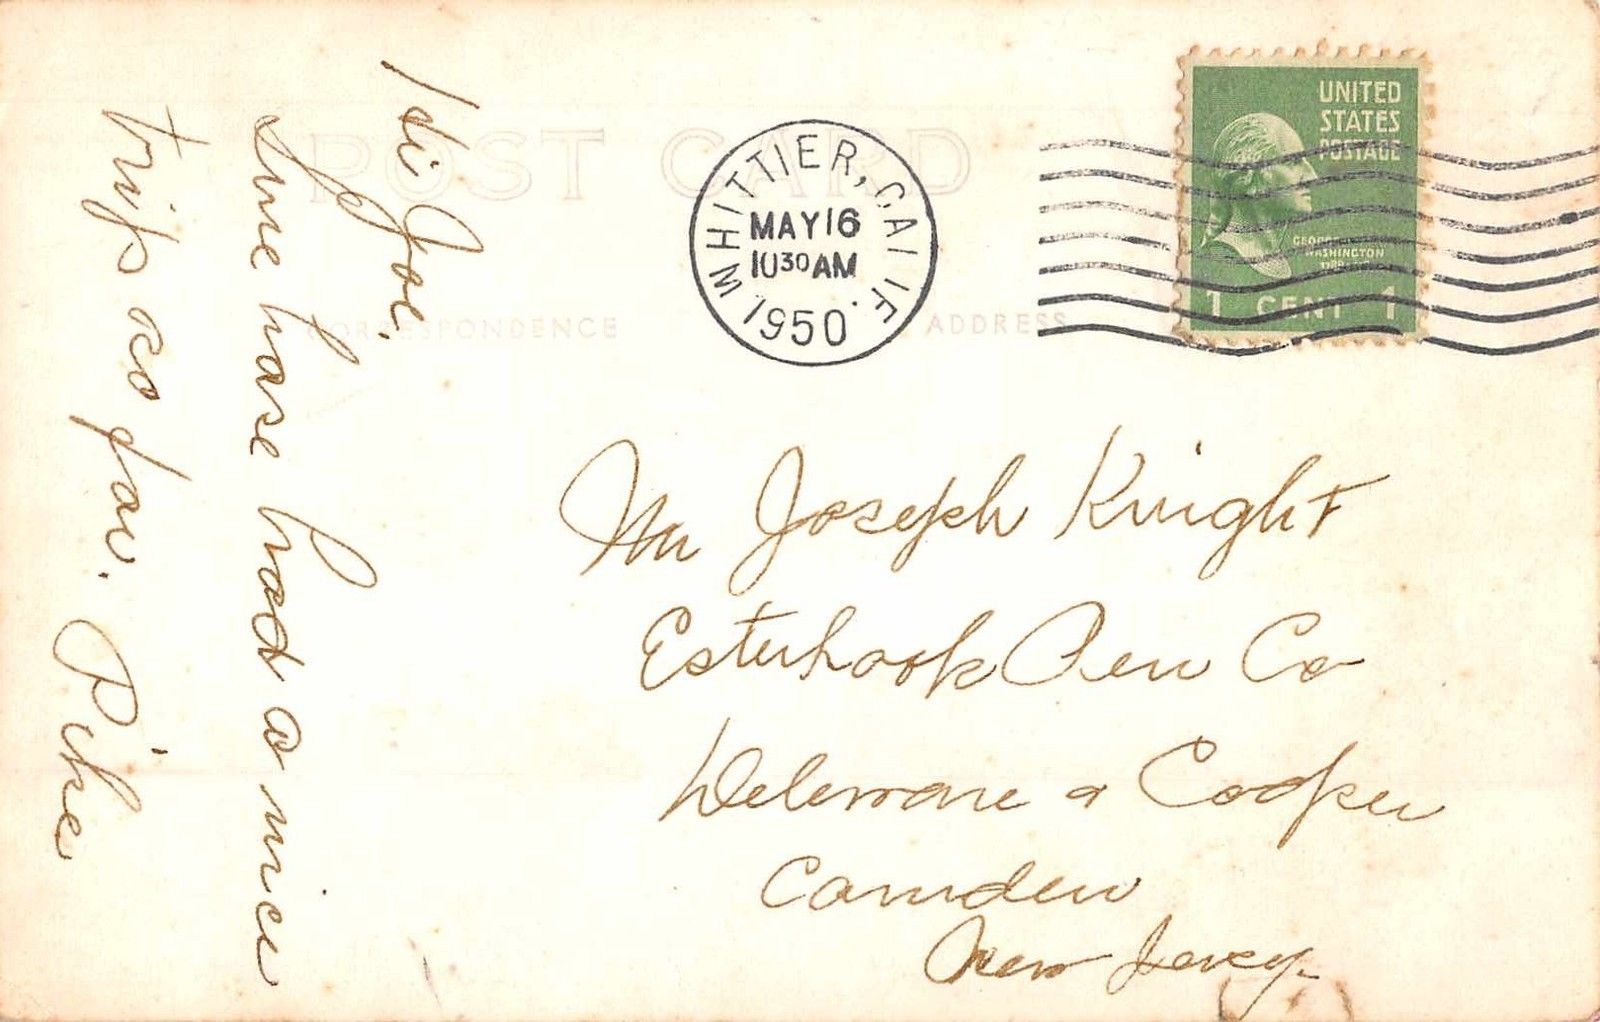 POST CARD
CORRESPONDENCE
ADDRESS
WHITTIER, CALIF.
MAY 16
10 30 AM
1950
UNITED
STATES
POSTAGE
GEORGE
WASHINGTON
1 CENT 1
Hi Joe.
Sure have had a nice
trip so far. Pike
Mr Joseph Knight
Esterhook Pen Co
Deleware & Cooper
Camden
New Jersey.